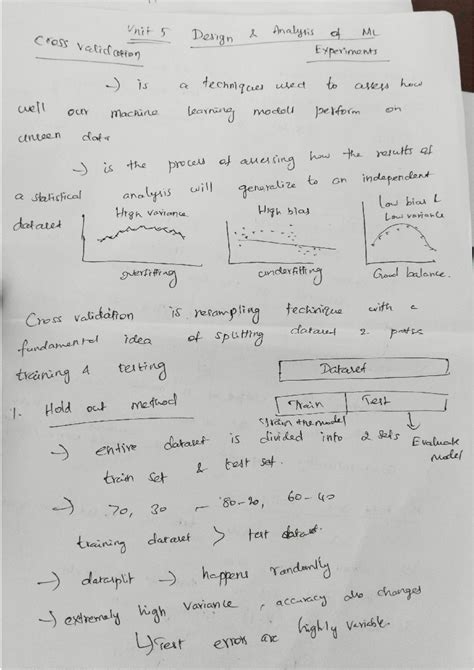 Unit 5 Design & Analysis of ML
Experiments
Cross Validation
-> is a techniques used to assess how
well our machine learning models perform on
unseen data
-> is the process of assessing how the results of
a statistical analysis will generalize to an independent
dataset
High variance
overfitting
High bias
underfitting
Low bias &
Low variance
Good balance.
Cross validation is resampling technique with a
fundamental idea of splitting dataset 2 parts
training & testing
Dataset
Train Test
Train the model
Evaluate
model
1. Hold out method
-> entire dataset is divided into 2 sets
train set & test set.
-> 70, 30 - 80-20, 60-40
training dataset > test dataset.
-> datasplit -> happens randomly
-> extremely high variance, accuracy also changes
↳ Test errors are highly variable.